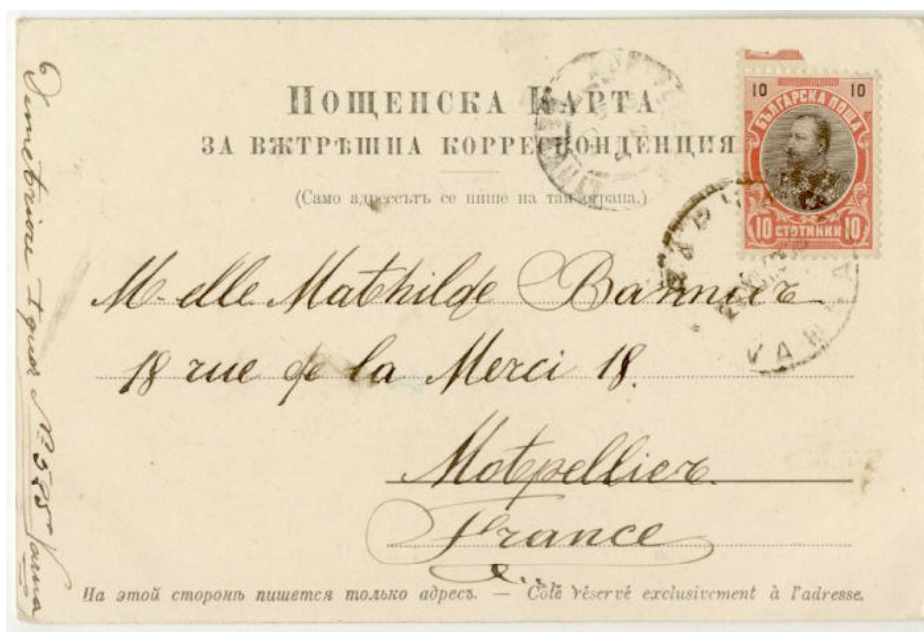 ПОЩЕНСКА КАРТА
ЗА ВѪТРѢШНА КОРРЕСПОНДЕНЦИЯ
(Само адрессътъ се пише на тая страна.)
10 10
БЪЛГАРСКА ПОЩА
10 СТОТИНКИ 10
ВАРНА
VARNA
M-elle Mathilde
18 rue de la Merci 18.
Motpellier
France
На этой сторонѣ пишется только адресъ. — Côté réservé exclusivement à l'adresse.
№ 575 Varna